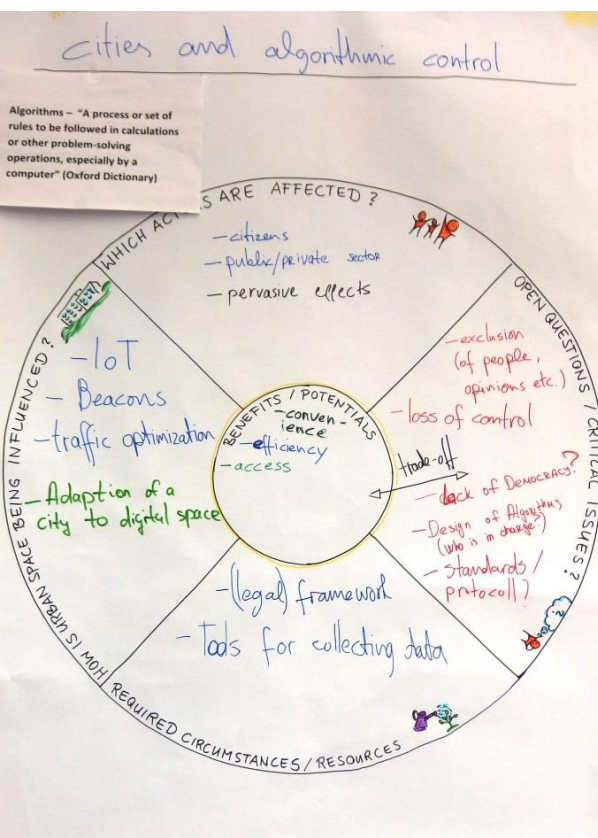 cities and algorithmic control
Algorithms – "A process or set of
rules to be followed in calculations
or other problem-solving
operations, especially by a
computer" (Oxford Dictionary)
WHICH AC S ARE AFFECTED?
-citizens
-public/private sector
-pervasive effects
OPEN QUESTIONS / CRITICAL ISSUES?
-exclusion
(of people,
opinions etc.)
-loss of control
trade-off
-Lack of DEMOCRACY?
-Design of Algorithms
(who is in charge?)
-Standards/
protocoll?
HOW IS URBAN SPACE BEING INFLUENCED?
-IoT
-Beacons
-traffic optimization
-Adaption of a
city to digital space
BENEFITS / POTENTIALS
-conven-
ience
-efficiency
-access
REQUIRED CIRCUMSTANCES/RESOURCES
-(legal) framework
-Tools for collecting data